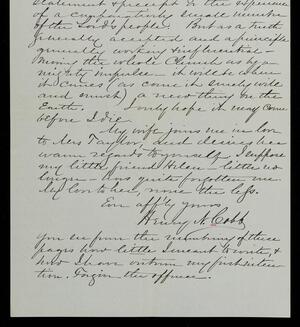 statement & precept to the experience
of a comparatively small number
of the Lord's people. But as a truth
generally accepted and a principle
generally working & influential —
moving the whole Church as by a
mighty impulse — it will be when
it comes (as come it surely will
and must) a new thing in the
Earth. I only hope it may come
before I die.
My wife joins me in love
to Mrs Taylor, and desires her
warm regards to yourself. I suppose
my little friend Helen — little no
longer — has quite forgotten me.
My love to her, none the less.
Ever affly yours
Henry N. Cobb
You see from the numbering of these
pages how little I meant to write, &
how I have outrun my first inten-
tion. Forgive the offence.